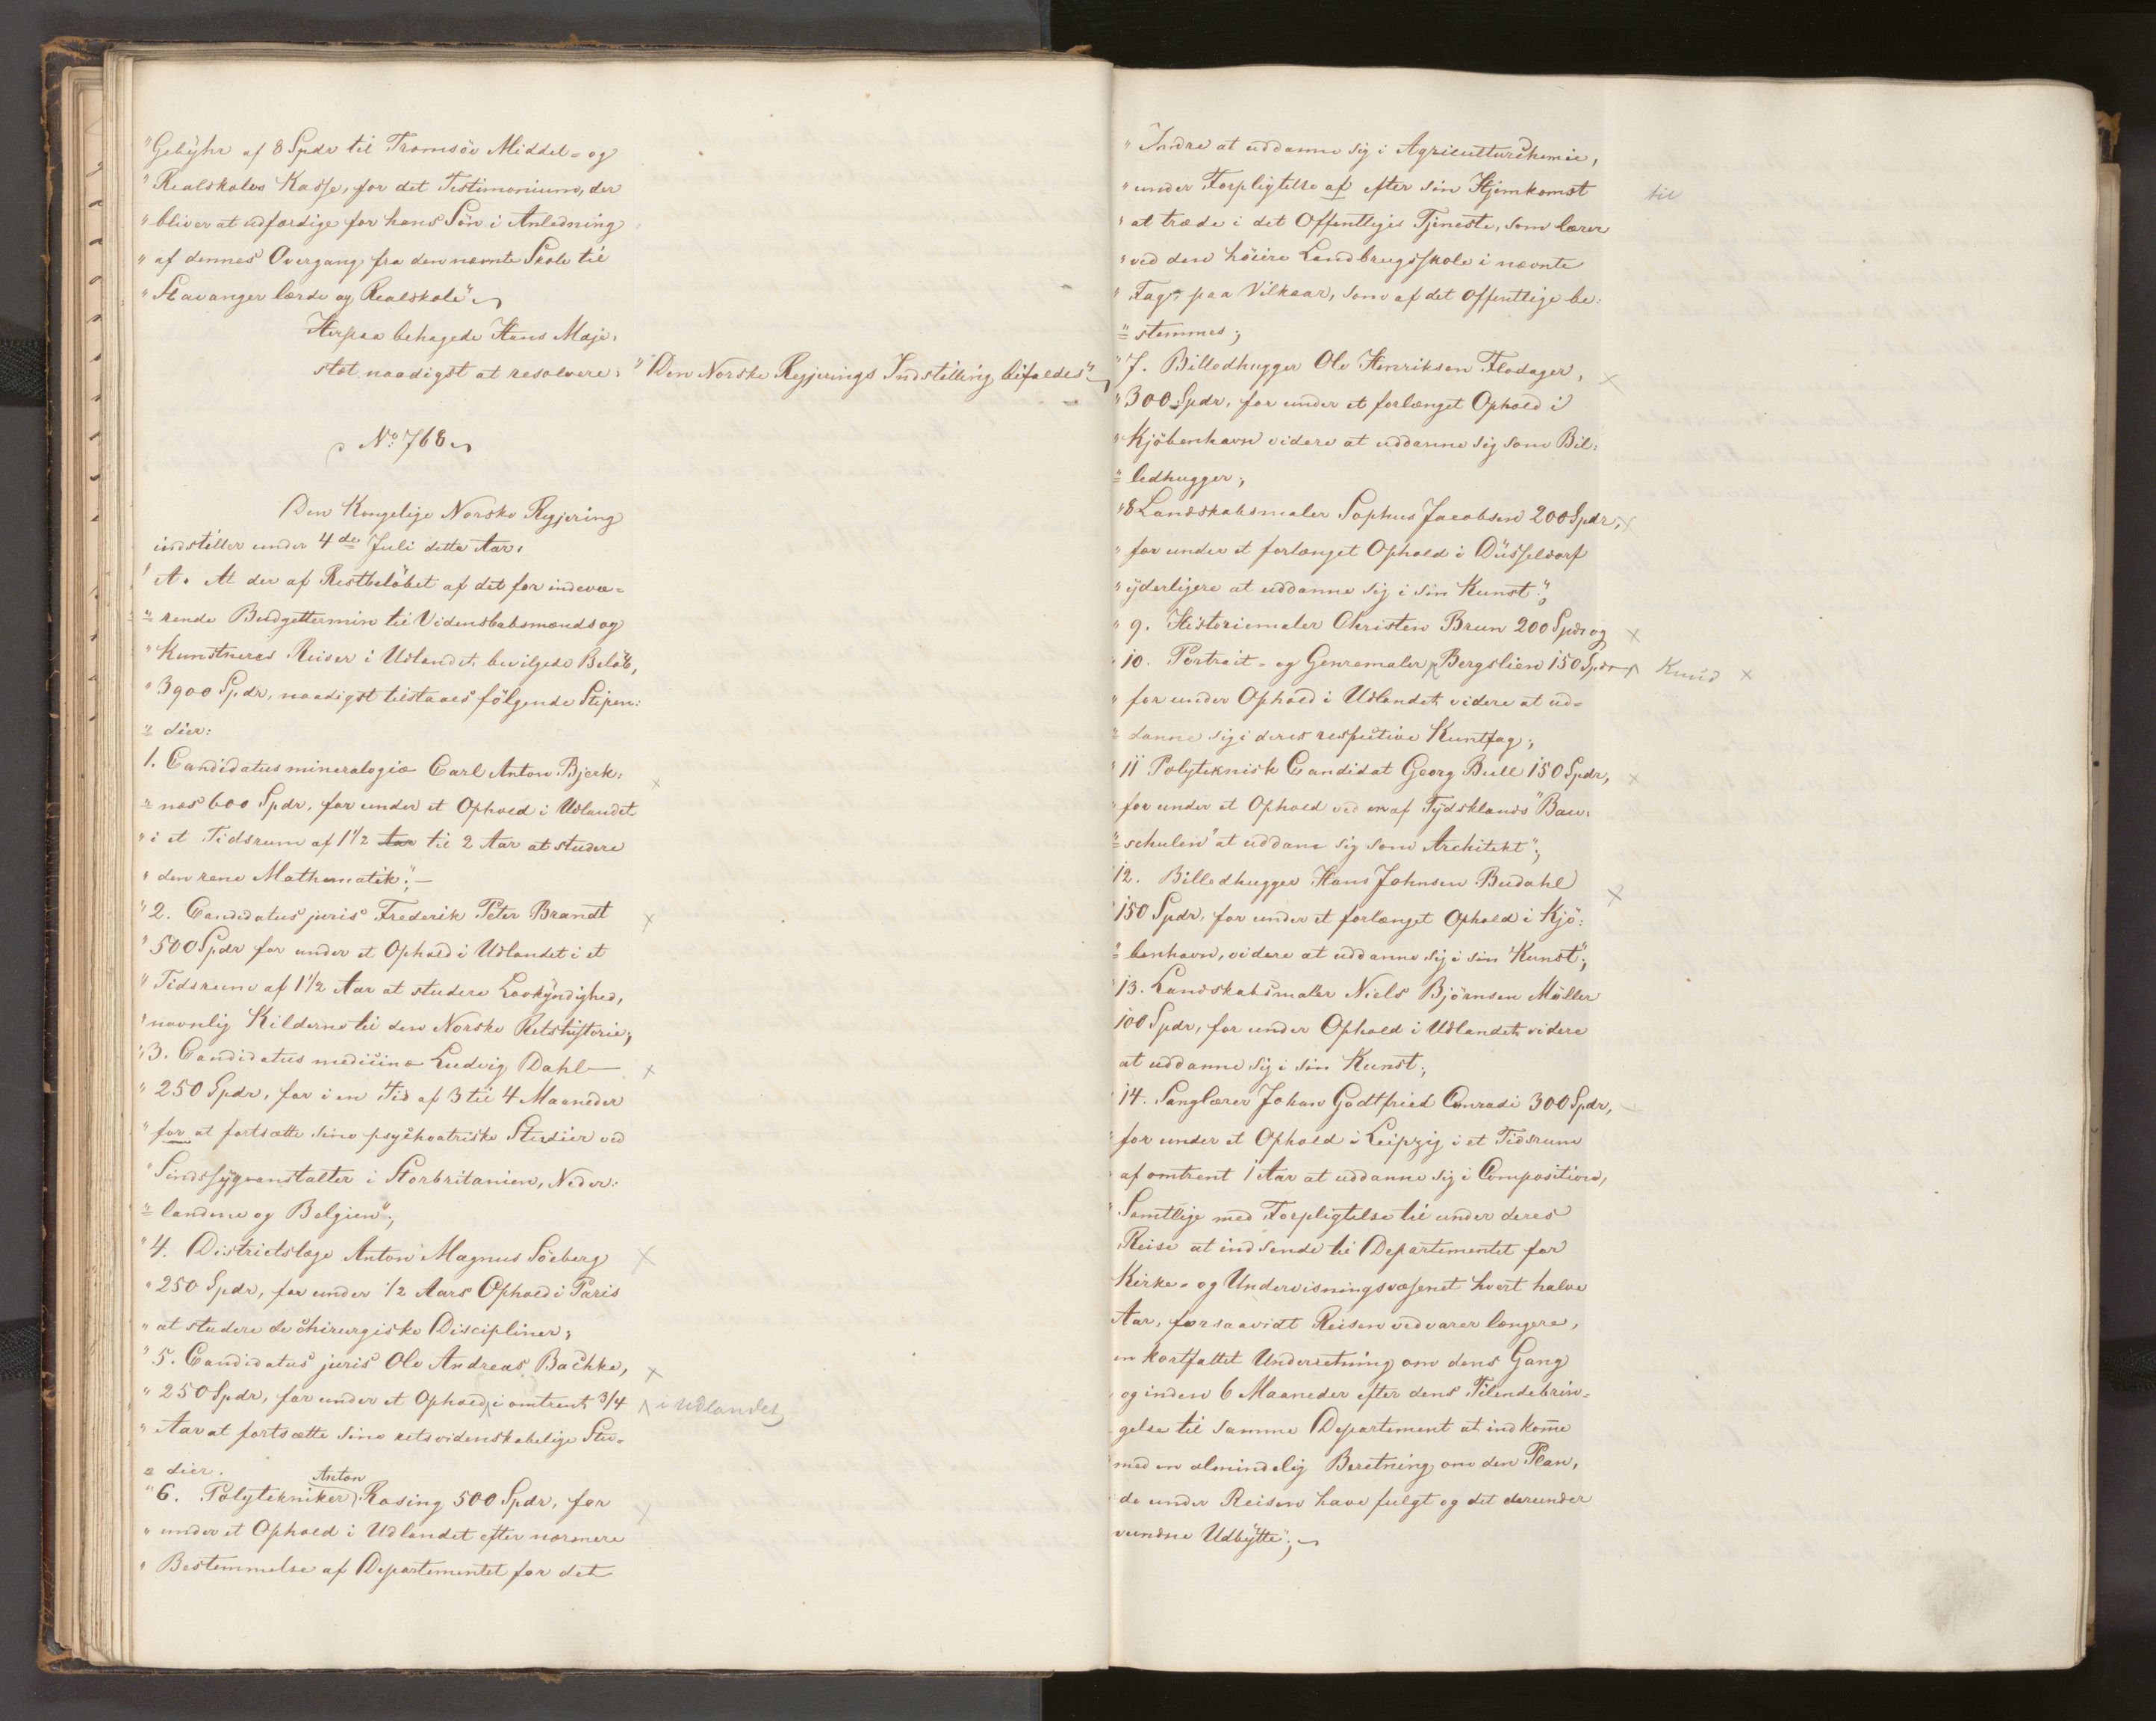 "Gebyhr af 8 Spdr til Tromsöe Middel- og
"Realskoles Kasse, for det Testimonium, der
"bliver at udfærdige for hans Sön i Anledning
"af dennes Overgang fra den nævnte Skole til
"Stavanger lærde og Realskole".
Herpaa behagede Hans Maje:
stæt naadigst at resolvere: "Den Norske Regjerings Indstilling bifaldes"
No. 768
Den Kongelige Norske Regjering
indstiller under 4de Juli dette Aar:
"A. At der af Restbelöbet af det for indevæ=
"= rende Budgettermin til Videnskabsmænds og
"Kunstneres Reiser i Udlandet bevilgede Belöb,
"3900 Spdr, naadigst tilstaaes fölgende Stipen:
"= dier:
1. Candidatus mineralogiæ Carl Anton Bjerk: ×
"= næs 600 Spdr, for under et Ophold i Udlandet
"i et Tidsrum af 1 1/2 Aar til 2 Aar at studere
"den rene Mathematik";—
"2. Candidatus juris Frederik Peter Brandt ×
"500 Spdr for under et Ophold i Udlandet i et
"Tidsrum af 1 1/2 Aar at studere Lovkyndighed,
"navnlig Kilderne til den Norske Retshistorie;
"3. Candidatus medicinæ Ludvig Dahl ×
"250 Spdr, for i en Tid af 3 til 4 Maaneder
"for at fortsætte sine psychiatriske Studier ved
"Sindssygeanstalter i Storbritanien, Neder:
"= landene og Belgien";
"4. Districtslæge Anton Magnus Söeberg ×
"250 Spdr, for under 1/2 Aars Ophold i Paris
"at studere de chirurgiske Discipliner;
"5. Candidatus juris Ole Andreas Bachke, ×
"250 Spdr, for under et Ophold i omtrent 3/4 i Udlandet
"Aar at fortsætte sine retsvidenskabelige Stu=
"= dier.
Anton
"6. Polytekniker Rosing 500 Spdr, for ×
"under et Ophold i Udlandet efter nærmere
"Bestemmelse af Departementet for det
"Indre at uddanne sig i Agriculturchemie,
"under Forpligtelse af efter sin Hjemkomst til
"at træde i det Offentliges Tjeneste, som lærer
"ved den höiere Landbrugsskole i nævnte
"Fag, paa Vilkaar, som af det Offentlige be:
"= stemmes;
"7. Billedhugger Ole Henriksen Fladager, ×
"300 Spdr, for under et forlænget Ophold i
"Kjöbenhavn videre at uddanne sig som Bil:
"= ledhugger;
"8 Landskabsmaler Sophus Jacobsen 200 Spdr, ×
"for under et forlænget Ophold i Düsseldorf
"yderligere at uddanne sig i sin Kunst";
"9. Historiemaler Christen Brun 200 Spdr og ×
"10. Portrait- og Genremaler Bergslien 150 Spdr Knud ×
"for under Ophold i Udlandet videre at ud=
"= danne sig i deres respective Kuntfag;
"11 Polyteknisk Candidat Georg Bull 150 Spdr, ×
"for under et Ophold ved en af Tydsklands "Bau:
"= schulen" at uddane sig som Architekt";
12. Billedhugger Hans Johnsen Budahl ×
"150 Spdr, for under et forlænget Ophold i Kjö:
"= benhavn, videre at uddanne sig i sin Kunst";
"13. Landskabsmaler Niels Björnsen Möller
100 Spdr, for under Ophold i Udlandet videre
at uddanne sig i sin Kunst;
"14. Sanglærer Johan Godtfried Conradi 300 Spdr,
"for under et Ophold i Leipzig i et Tidsrum
"af omtrent 1 Aar at uddanne sig i Composition,
"Samtlige med Forpligtelse til under deres
Reise at indsende til Departementet for
Kirke- og Undervisningsvæsenet hvert halve
Aar, forsaavidt Reisen vedvarer længere,
en kortfattet Underretning om dens Gang
"og inden 6 Maaneder efter dens Tilendebrin=
gelse til samme Departement at indkom̄e
"med en almindelig Beretning om den Plan,
de under Reisen have fulgt og det derunder
vundne Udbytte";